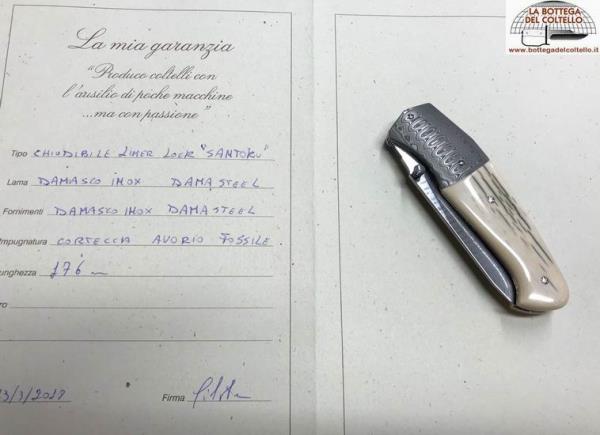 La mia garanzia
"Produco coltelli con
l'ausilio di poche macchine
...ma con passione"
Tipo CHIUDIBILE LINER LOCK "SANTOKU"
Lama DAMASCO INOX DAMASTEEL
Fornimenti DAMASCO INOX DAMASTEEL
Impugnatura CORTECCIA AVORIO FOSSILE
unghezza 176
Firma
LA BOTTEGA
DEL COLTELLO
www.bottegadelcoltello.it